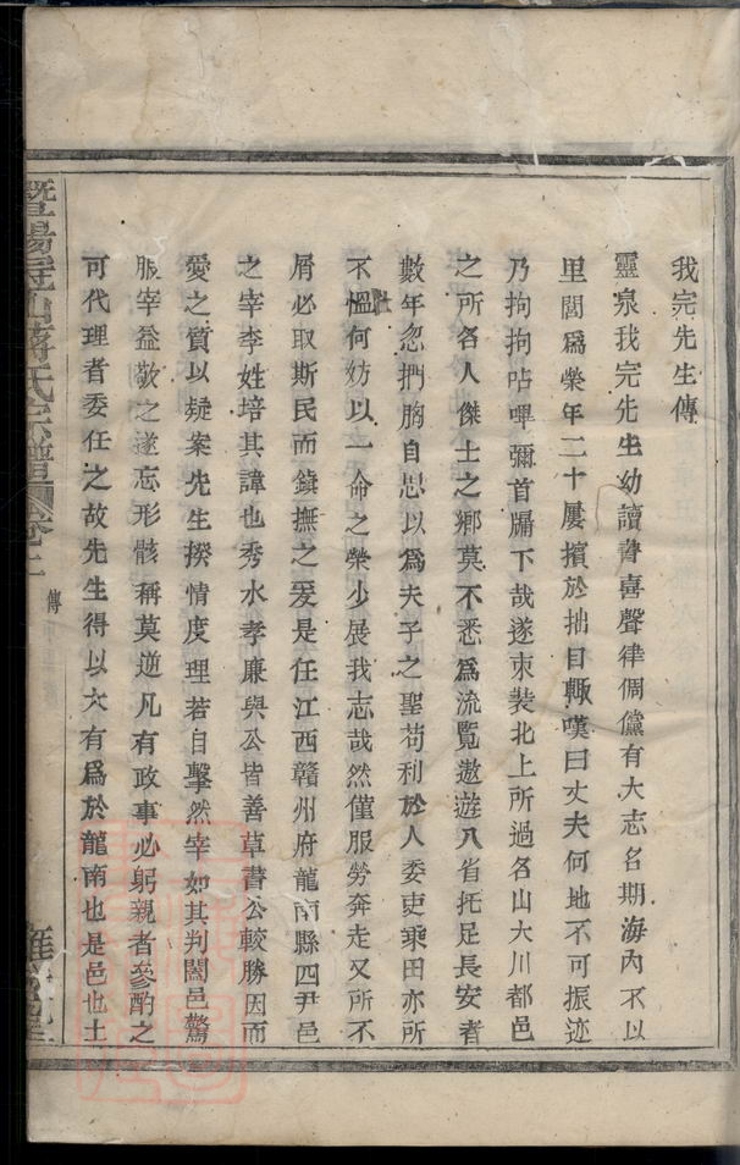 我完先生傳
靈泉我完先生幼讀書喜聲律倜儻有大志名期海內不以
里閭爲榮年二十屢擯於拙目輒嘆曰丈夫何地不可振迹
乃拘拘呫嗶彌首牖下哉遂朿裝北上所過名山大川都邑
之所名人傑士之鄉莫不悉爲流覧遨遊八省托足長安者
數年忽捫胸自思以爲夫子之聖苟利於人委吏乘田亦所
不慍何妨以一命之榮少展我志哉然僅服勞奔走又所不
屑必取斯民而鎮撫之爰是任江西贛州府龍南縣四尹邑
之宰李姓培其諱也秀水孝廉與公皆善草書公較勝因而
愛之質以疑案先生揆情度理若自擊然宰如其判闔邑驚
服宰益敬之遂忘形骸稱莫逆凡有政事必躬親者參酌之
可代理者委任之故先生得以大有爲於龍南也是邑也土
暨陽冠山蔣氏宗譜
傳